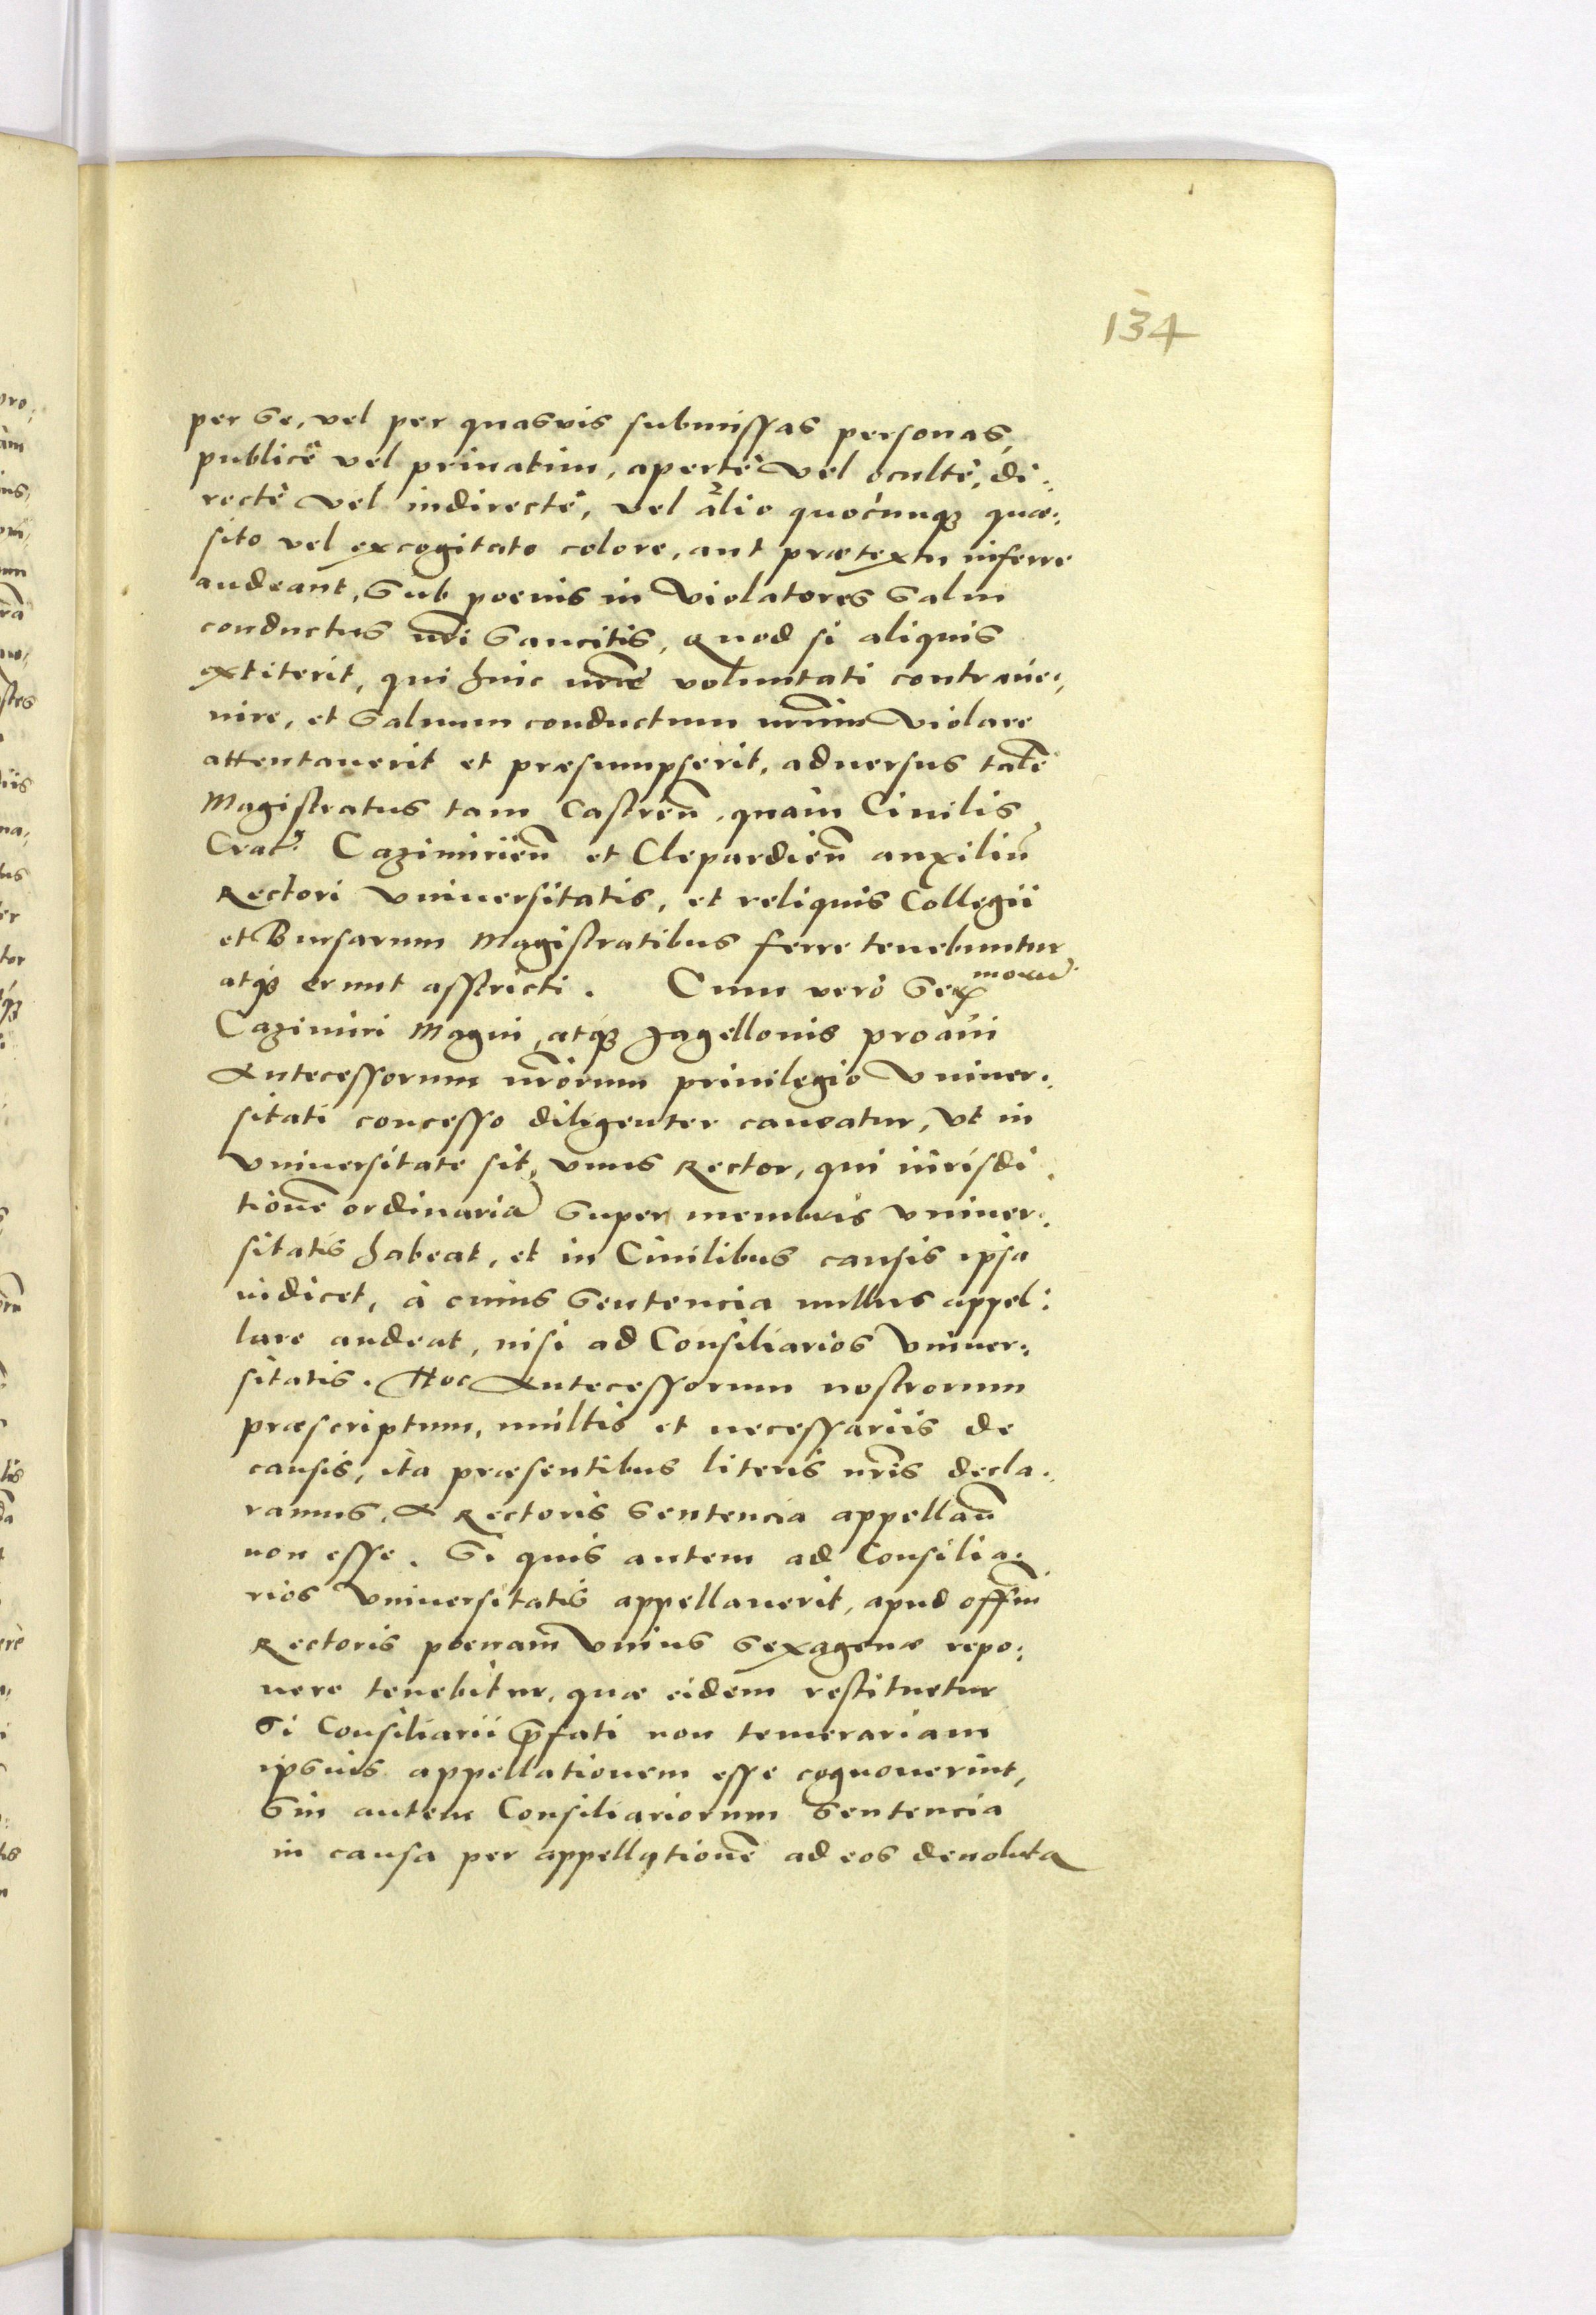 134
per se, vel per quasvis submissas personas,
publicè vel priuatim, apertè vel ocultè, di:
rectè vel indirectè, vel alio quocunqȝ quæ:
sito vel excogitato colore, aut prætextu inferre
audeant, Sub poenis in Violatores Salui
conductus nr̃i Sancitis, Quod si aliquis
extiterit, qui huic nr̃æ voluntati contraue:
nire, et Saluum conductum nr̃um Violare
attentauerit et præsumpserit, aduersus talẽ
Magistratus tam Castreñ, quàm Ciuilis,
Crac̃: Cazimirieñ et Clepardieñ auxiliũ
Rectori Vniuersitatis, et reliquis Collegii
et Bursarum Magistratibus ferre tenebuntur
atqȝ erunt asstricti. Cum verò Ser
Cazimiri Magni, atqȝ Jagellonis proaui
Antecessorum nr̃orum priuilegio Vniuer:
sitati concesso diligenter caueatur, Vt in
Vniuersitate sit, vnus Rector, qui iurisdi:
tionẽ ordinariã Super membris Vniuer:
sitatis habeat, et in Ciuilibus causis ipsa
iudicet, à cuius Sentencia nullus appel:
lare audeat, nisi ad Consiliarios Vniuer:
sitatis. Hoc Antecessorum nostrorum
præscriptum, multis et necessariis de
causis, ita præsentibus literis nr̃is decla:
ramus, A Rectoris Sentencia appellañ
non esse. Si quis autem ad Consilia:
rios Vniuersitatis appellauerit, apud offm̃
Rectoris poenam Vnius Sexagenæ repo:
nere tenebitur, quæ eidem restituetur
Si Consiliarii p̃fati non temerariam
ipsius appellationem esse cognouerint,
Sin autem Consiliariorum Sentencia
in causa per appellationẽ ad eos deuoluta